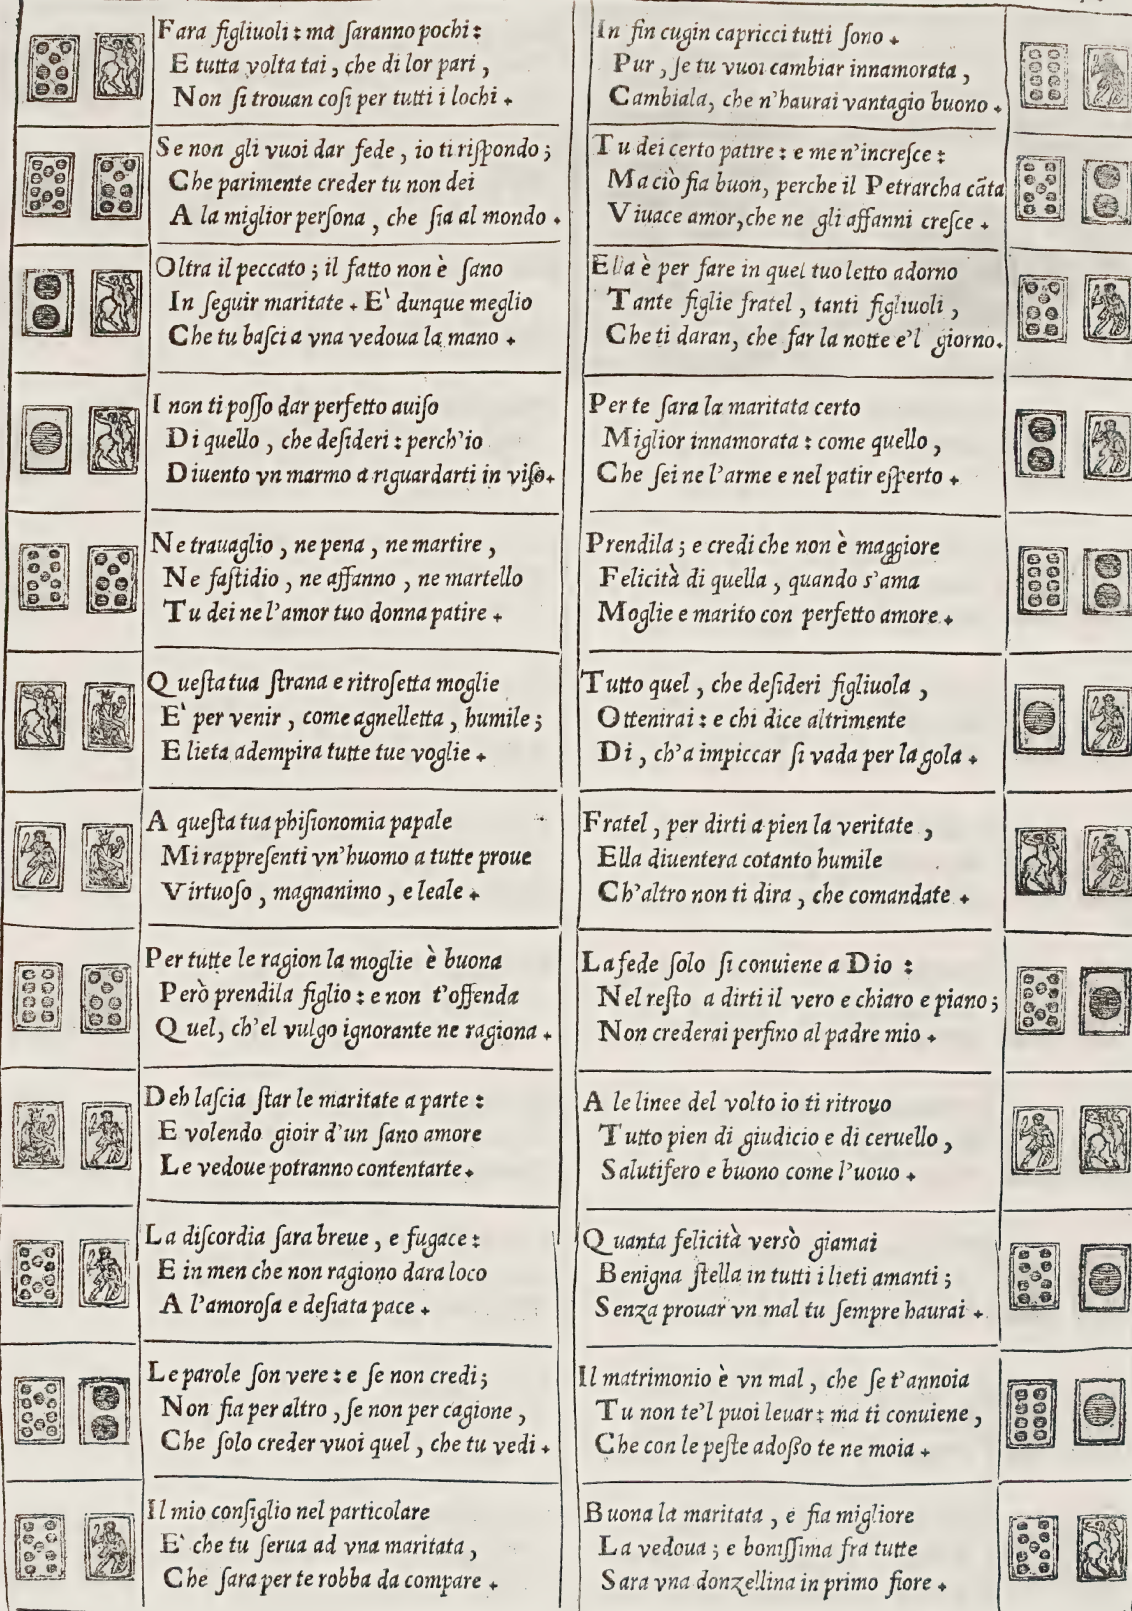 Fara figliuoli : ma ſaranno pochi :
E tutta volta tai , che di lor pari ,
Non ſi trouan coſi per tutti i lochi .
Se non gli vuoi dar fede , io ti riſpondo ;
Che parimente creder tu non dei
A la miglior perſona , che ſia al mondo .
Oltra il peccato ; il fatto non è ſano
In ſeguir maritate . E' dunque meglio
Che tu baſci a vna vedoua la mano .
I non ti poſſo dar perfetto auiſo
Di quello , che deſideri : perch'io
Diuento vn marmo a riguardarti in viſo.
Ne trauaglio , ne pena , ne martire ,
Ne faſtidio , ne affanno , ne martello
Tu dei ne l'amor tuo donna patire .
Queſta tua ſtrana e ritroſetta moglie
E' per venir , come agnelletta , humile ;
E lieta adempira tutte tue voglie .
A queſta tua phiſionomia papale
Mi rappreſenti vn'huomo a tutte proue
Virtuoſo , magnanimo , e leale .
Per tutte le ragion la moglie è buona
Però prendila figlio : e non t'offenda
Quel, ch'el vulgo ignorante ne ragiona .
Deh laſcia ſtar le maritate a parte :
E volendo gioir d'un ſano amore
Le vedoue potranno contentarte .
La diſcordia ſara breue , e fugace :
E in men che non ragiono dara loco
A l'amoroſa e deſiata pace .
Le parole ſon vere : e ſe non credi ;
Non fia per altro , ſe non per cagione ,
Che ſolo creder vuoi quel , che tu vedi .
Il mio conſiglio nel particolare
E' che tu ſerua ad vna maritata ,
Che ſara per te robba da compare .
In fin cugin capricci tutti ſono .
Pur , ſe tu vuoi cambiar innamorata ,
Cambiala, che n'haurai vantagio buono .
Tu dei certo patire : e me n'increſce :
Ma ciò fia buon, perche il Petrarcha cãta
Viuace amor, che ne gli affanni creſce .
Ella è per fare in quel tuo letto adorno
Tante figlie fratel , tanti figliuoli ,
Che ti daran, che far la notte e'l giorno.
Per te ſara la maritata certo
Miglior innamorata : come quello ,
Che ſei ne l'arme e nel patir eſperto .
Prendila ; e credi che non è maggiore
Felicità di quella , quando s'ama
Moglie e marito con perfetto amore .
Tutto quel , che deſideri figliuola ,
Ottenirai : e chi dice altrimente
Di , ch'a impiccar ſi vada per la gola .
Fratel , per dirti a pien la veritate ,
Ella diuentera cotanto humile
Ch'altro non ti dira , che comandate .
La fede ſolo ſi conuiene a Dio :
Nel reſto a dirti il vero e chiaro e piano ;
Non crederai perfino al padre mio .
A le linee del volto io ti ritrouo
Tutto pien di giudicio e di ceruello ,
Salutifero e buono come l'uouo .
Quanta felicità verſò giamai
Benigna ſtella in tutti i lieti amanti ;
Senza prouar vn mal tu ſempre haurai .
Il matrimonio è vn mal , che ſe t'annoia
Tu non te'l puoi leuar : ma ti conuiene ,
Che con le peſte adoſſo te ne moia .
Buona la maritata , e fia migliore
La vedoua ; e boniſſima fra tutte
Sara vna donzellina in primo fiore .